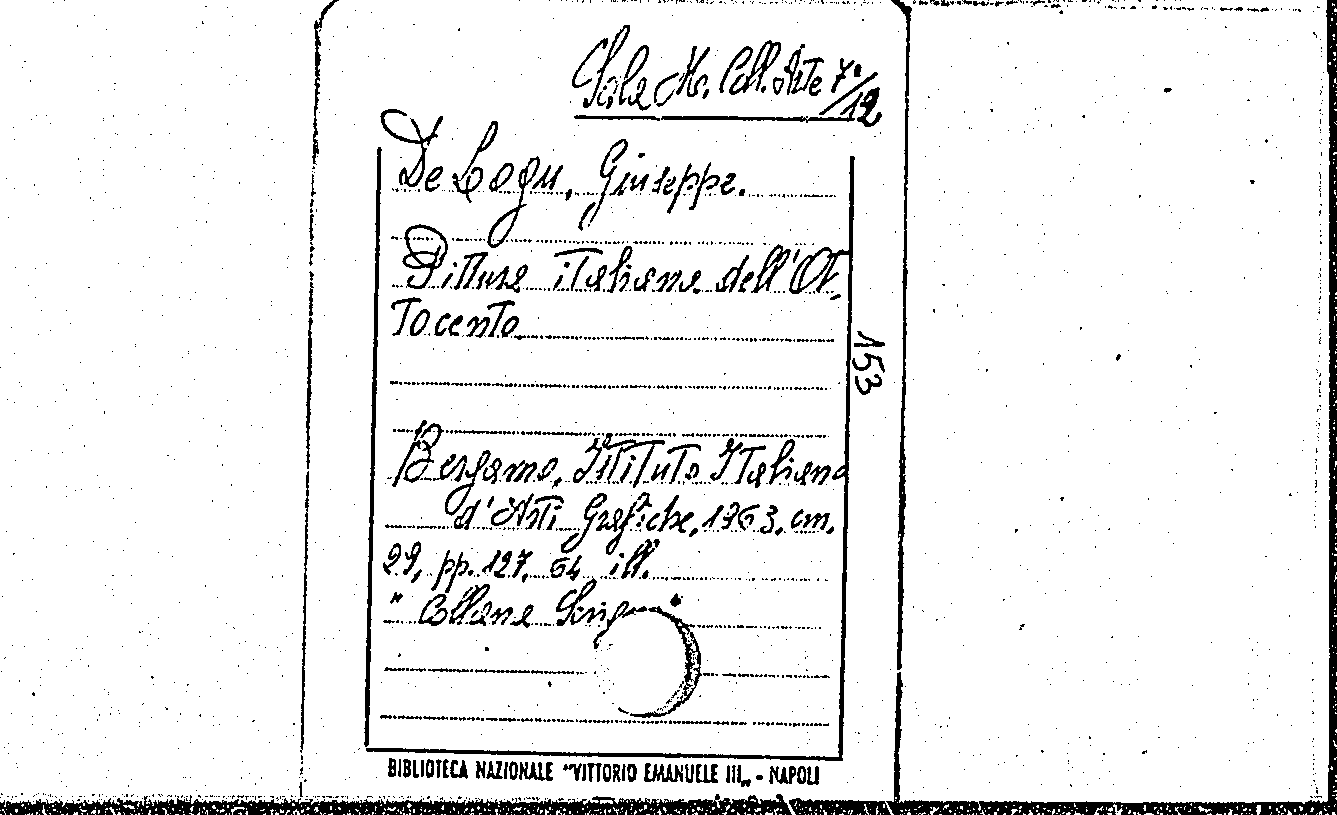 Sala M. Coll. Arte 7°/12
De Logu, Giuseppe.
Pittura italiana dell'Ot-
tocento
153
Bergamo, Istituto Italiano
d'Arti Grafiche, 1963, cm.
29, pp. 127, 64 ill.
"Collana
BIBLIOTECA NAZIONALE "VITTORIO EMANUELE III" - NAPOLI